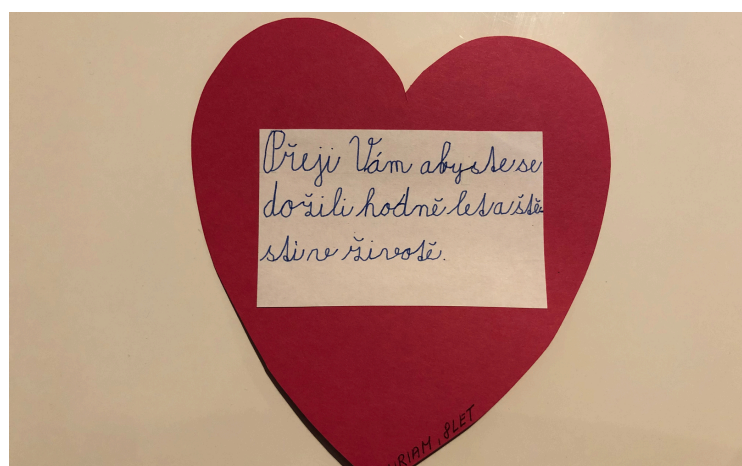 Přeji Vám abyste se
dožili hodně let a ště-
stí v životě.
RIAM, 8LET